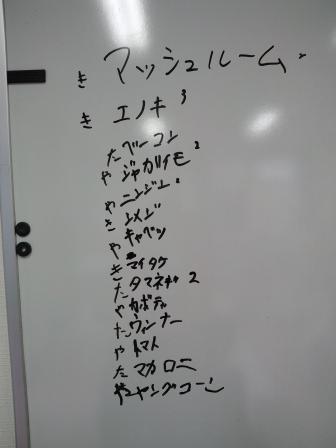 き マッシュルーム
き エノキ 3
た ベーコン
や ジャガイモ 2
や ニンジン 2
き シメジ
や キャベツ
き マイタケ
た タマネギ 2
や カボチャ
た ウィンナー
や トマト
た マカロニ
や ヤングコーン